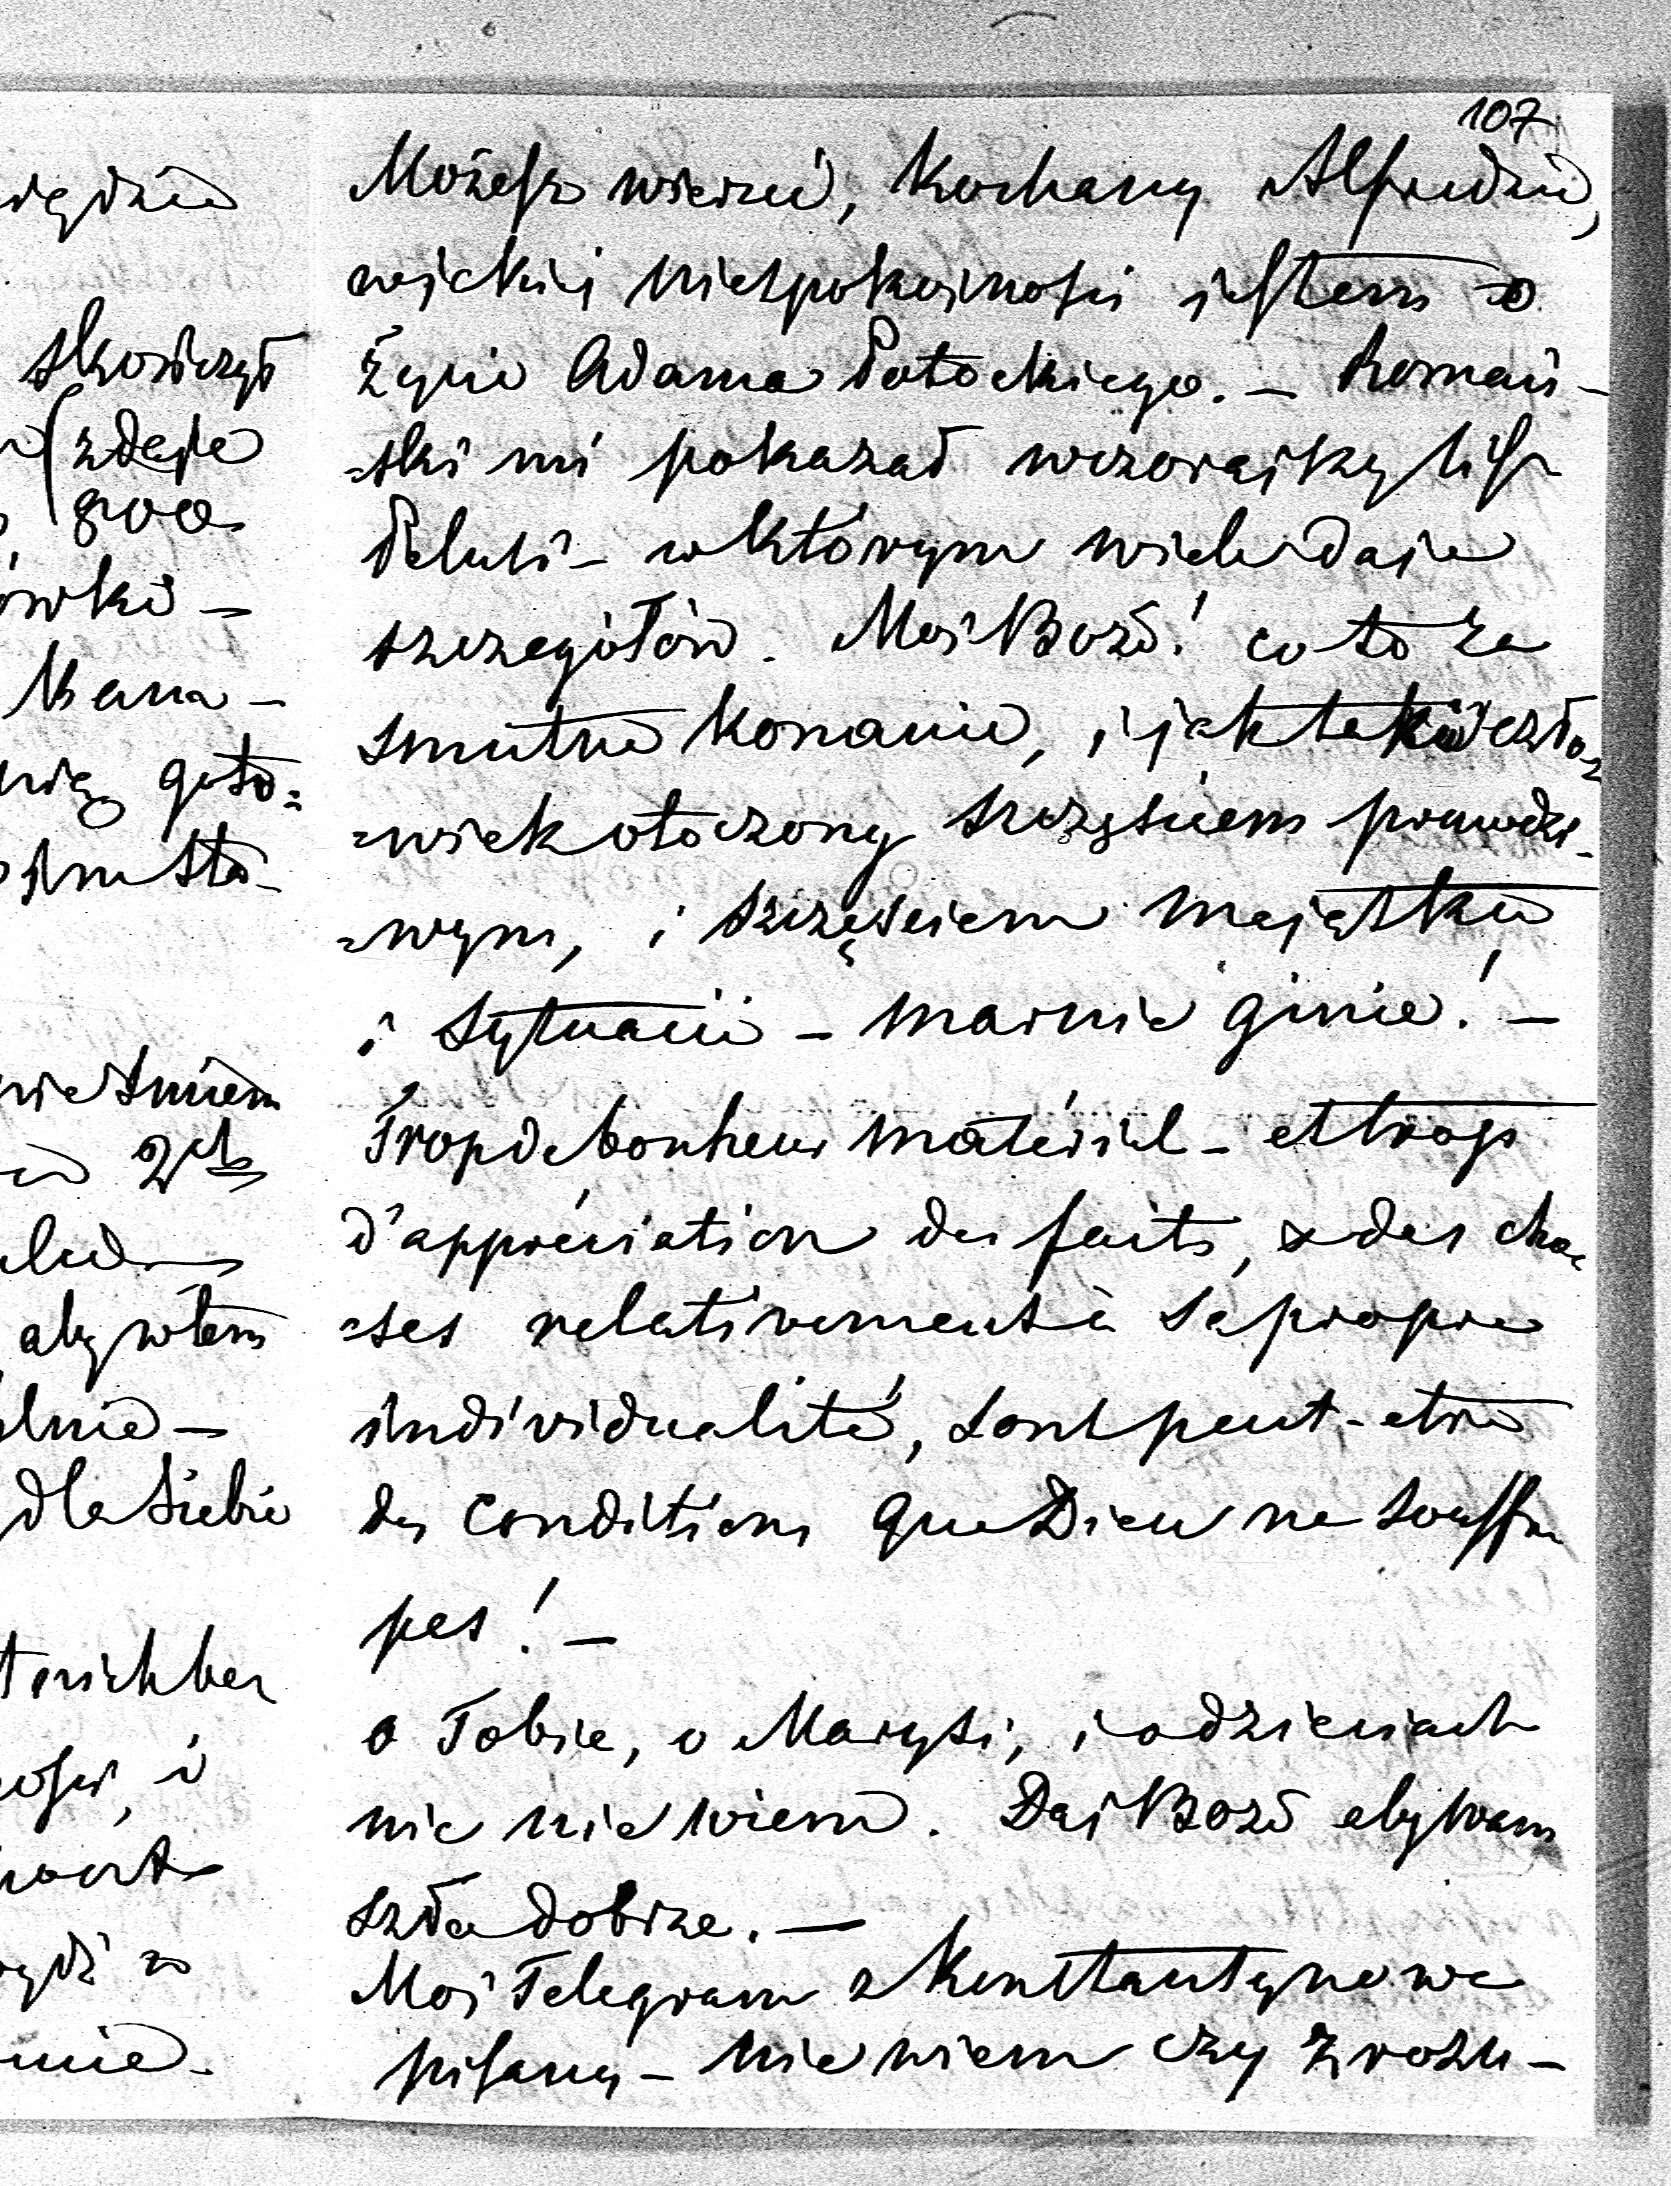 107
Możesz wierzyć, Kochany Alfredzie,
wielkiej niespokojności jestem o
życie Adama Potockiego. – Romań-
-ski mi pokazał wczorajszy list
Pelusi – w którym wiele daje
szczegółów. Mój Boże! co to za
smutne konanie, i jak taki czło-
-wiek otoczony szczęściem prawdzi-
-wym, i szczęściem majątku
i sytuacii – marnie ginie! –
Trop de bonheur matériel – et trop
d'appréciation des faits, & des cho-
-ses relativement à sa propre
individualité, sont peut-etre
des conditions que Dieu ne souffre
pas! –
o Tobie, o Marysi, i o dzieciach
nic nie wiem. Daj Boże aby wam
szło dobrze. –
Mój Telegram z Konstantynowa
pisany – nie wiem czy zrozu-
skończył
(zdaje
ówki –
goto=
nie śmiem
2ch
aby w tem
dla siebie